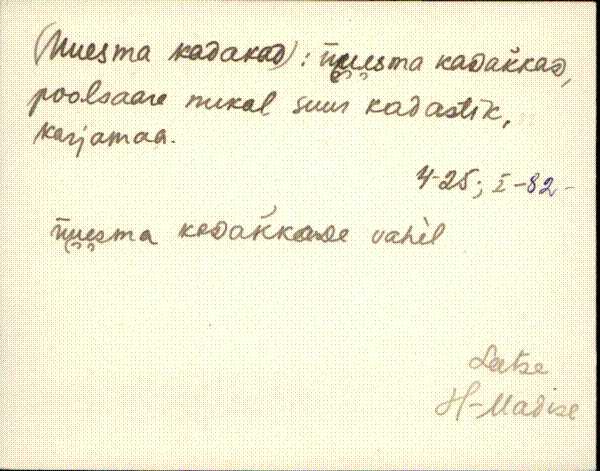 (Muesma kadakad): m̄uesma kadàkkad,
poolsaare nukal suur kadastik,
karjamaa.
4-25; I-82-
m̄uesma kadàkkade vahèl
Laetse
H-Madise